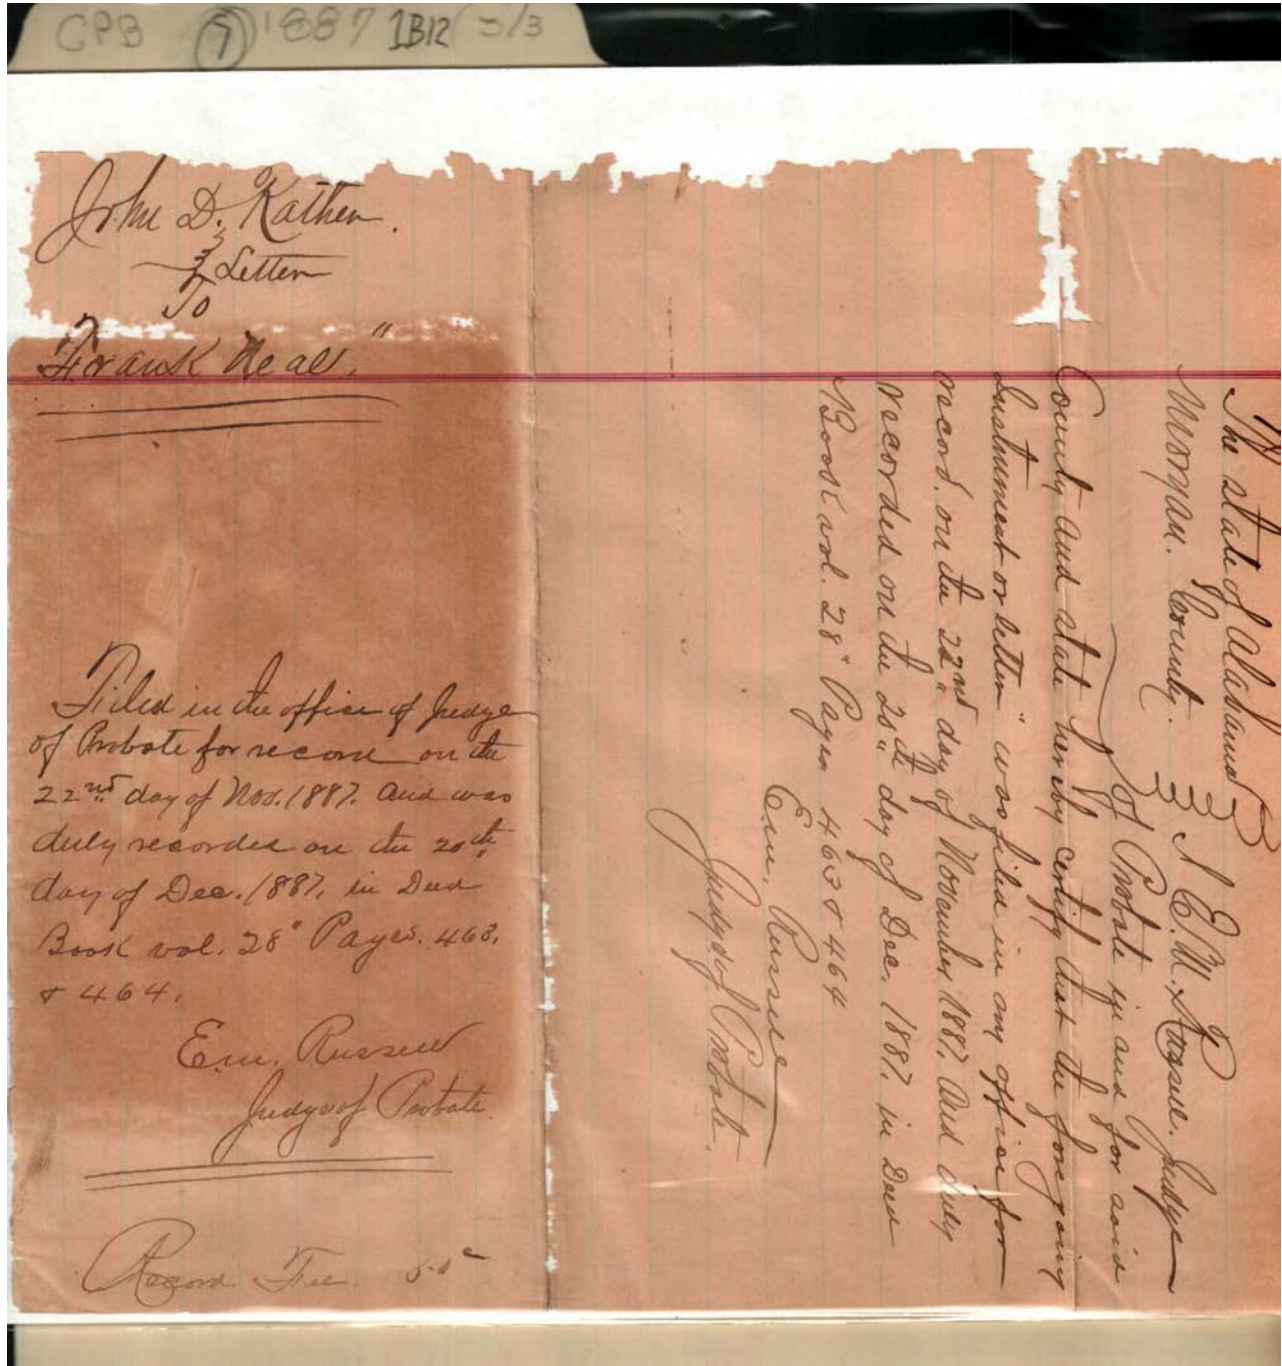 CPB 7 1887 1B12 3/3
John D. Kather.
Letter
To
"Frank Neal."
Filed in the office of Judge
of Probate for record on the
22nd day of Nov. 1887. and was
duly recorded on the 20th
day of Dec. 1887, in Deed
Book vol. 28" Pages. 463.
& 464.
E.M. Russell
Judge of Probate.
Record Fee. 50c
The State of Alabama
Morgan. County. I E. M. Russell. Judge
of Probate in and for said
County and state hereby certify that the foregoing
Instrument or letter" was filed in my office for
record. on the 22nd day of November 1887. and duly
recorded on the 20th day of Dec. 1887. in Deed
Book vol. 28" Pages 463 & 464
E.M. Russell
Judge of Probate.